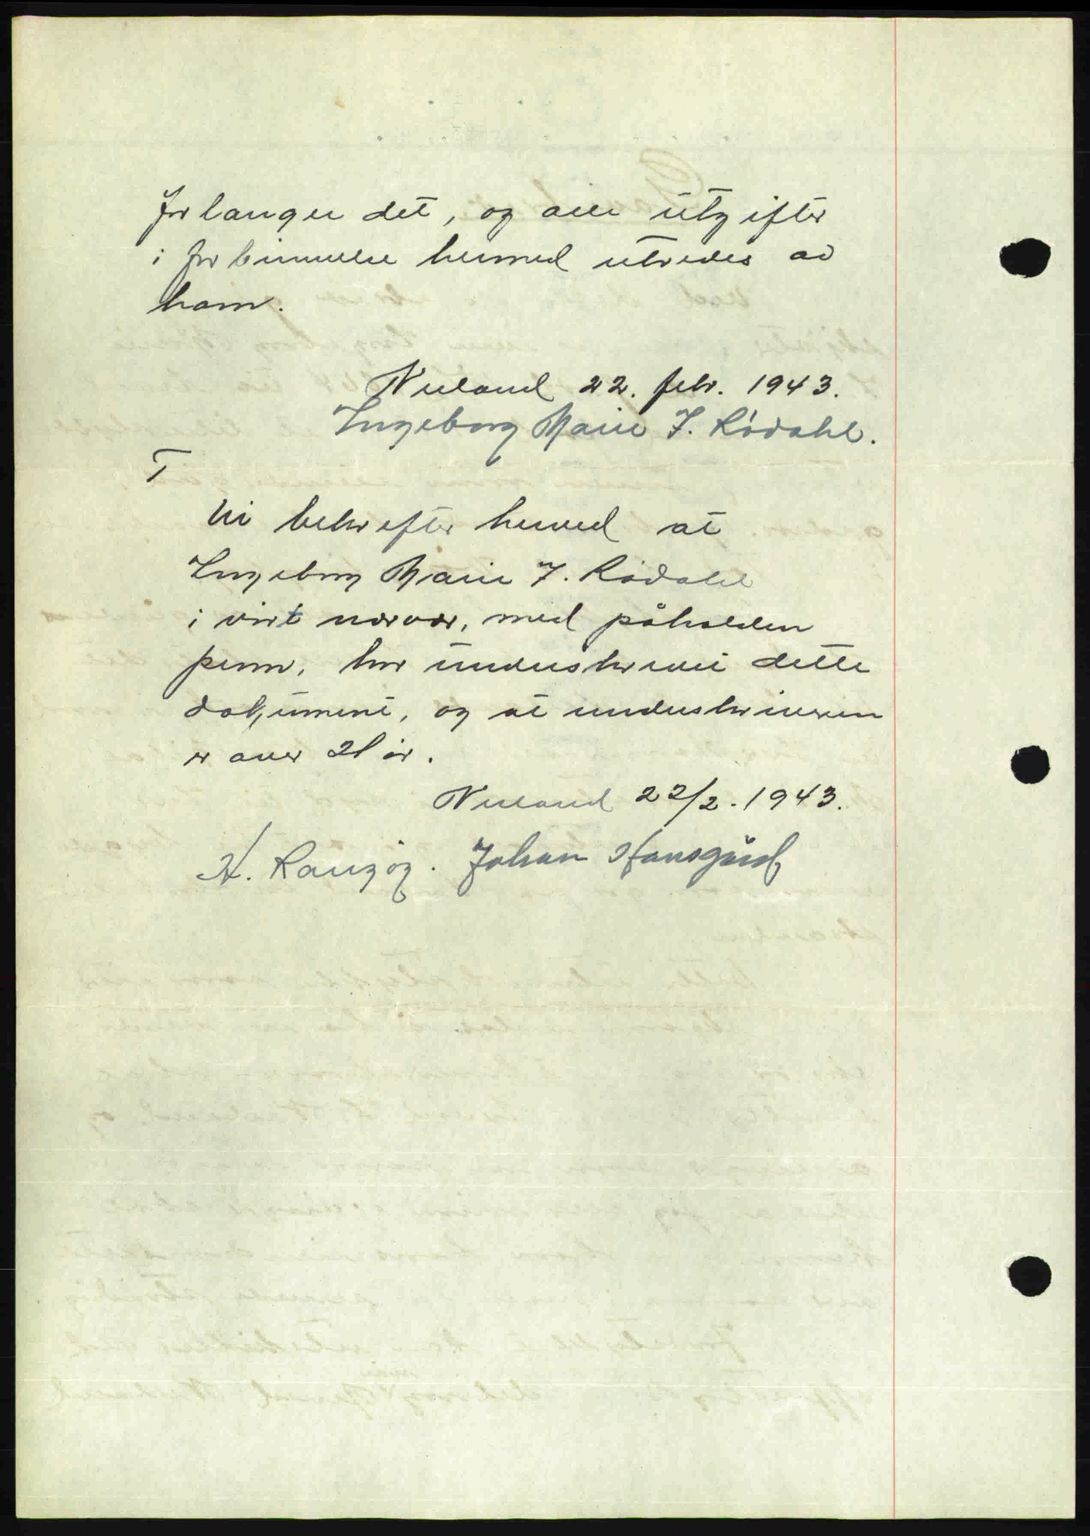 forlanger det, og alle utgifter
i forbinnelse hermed utredes av
ham.
Neuland 22. febr. 1943.
Ingeborg Marie J. Rødahl.
Vi bekrefter herved at
Ingeborg Marie J. Rødahl
i vårt nærvær, med påholden
penn, har underskrevet dette
dokument, og at underskriveren
er over 21 år.
Neuland 22/2. 1943.
H. Rangøg. Johan Hansgård